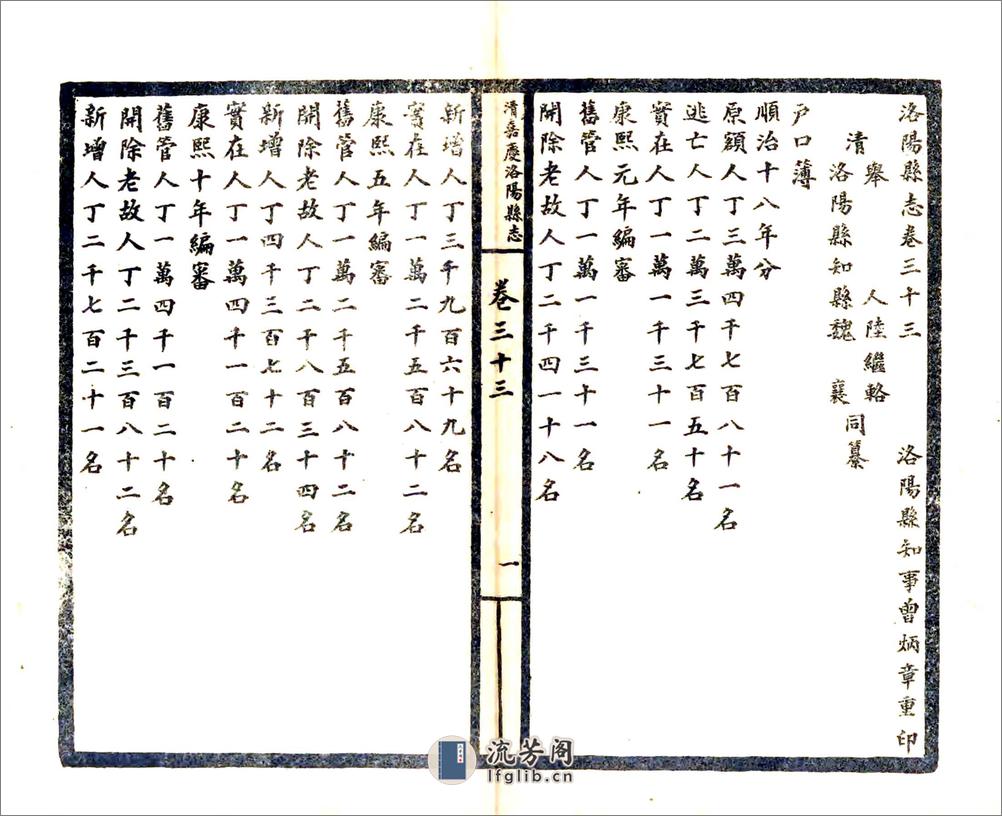 洛陽縣志卷三十三 洛陽縣知事曾炳章重印
舉 人陸繼輅
清
洛陽縣知縣魏 襄同纂
戶口簿
順治十八年分
原額人丁三萬四千七百八十一名
逃亡人丁二萬三千七百五十名
實在人丁一萬一千三十一名
康熙元年編審
舊管人丁一萬一千三十一名
開除老故人丁二千四一十八名
清嘉慶洛陽縣志 卷三十三 一
新增人丁三千九百六十九名
實在人丁一萬二千五百八十二名
康熙五年編審
舊管人丁一萬二千五百八十二名
開除老故人丁二千八百三十四名
新增人丁四千三百七十二名
實在人丁一萬四千一百二十名
康熙十年編審
舊管人丁一萬四千一百二十名
開除老故人丁二千三百八十二名
新增人丁二千七百二十一名
流芳阁
lfglib.cn